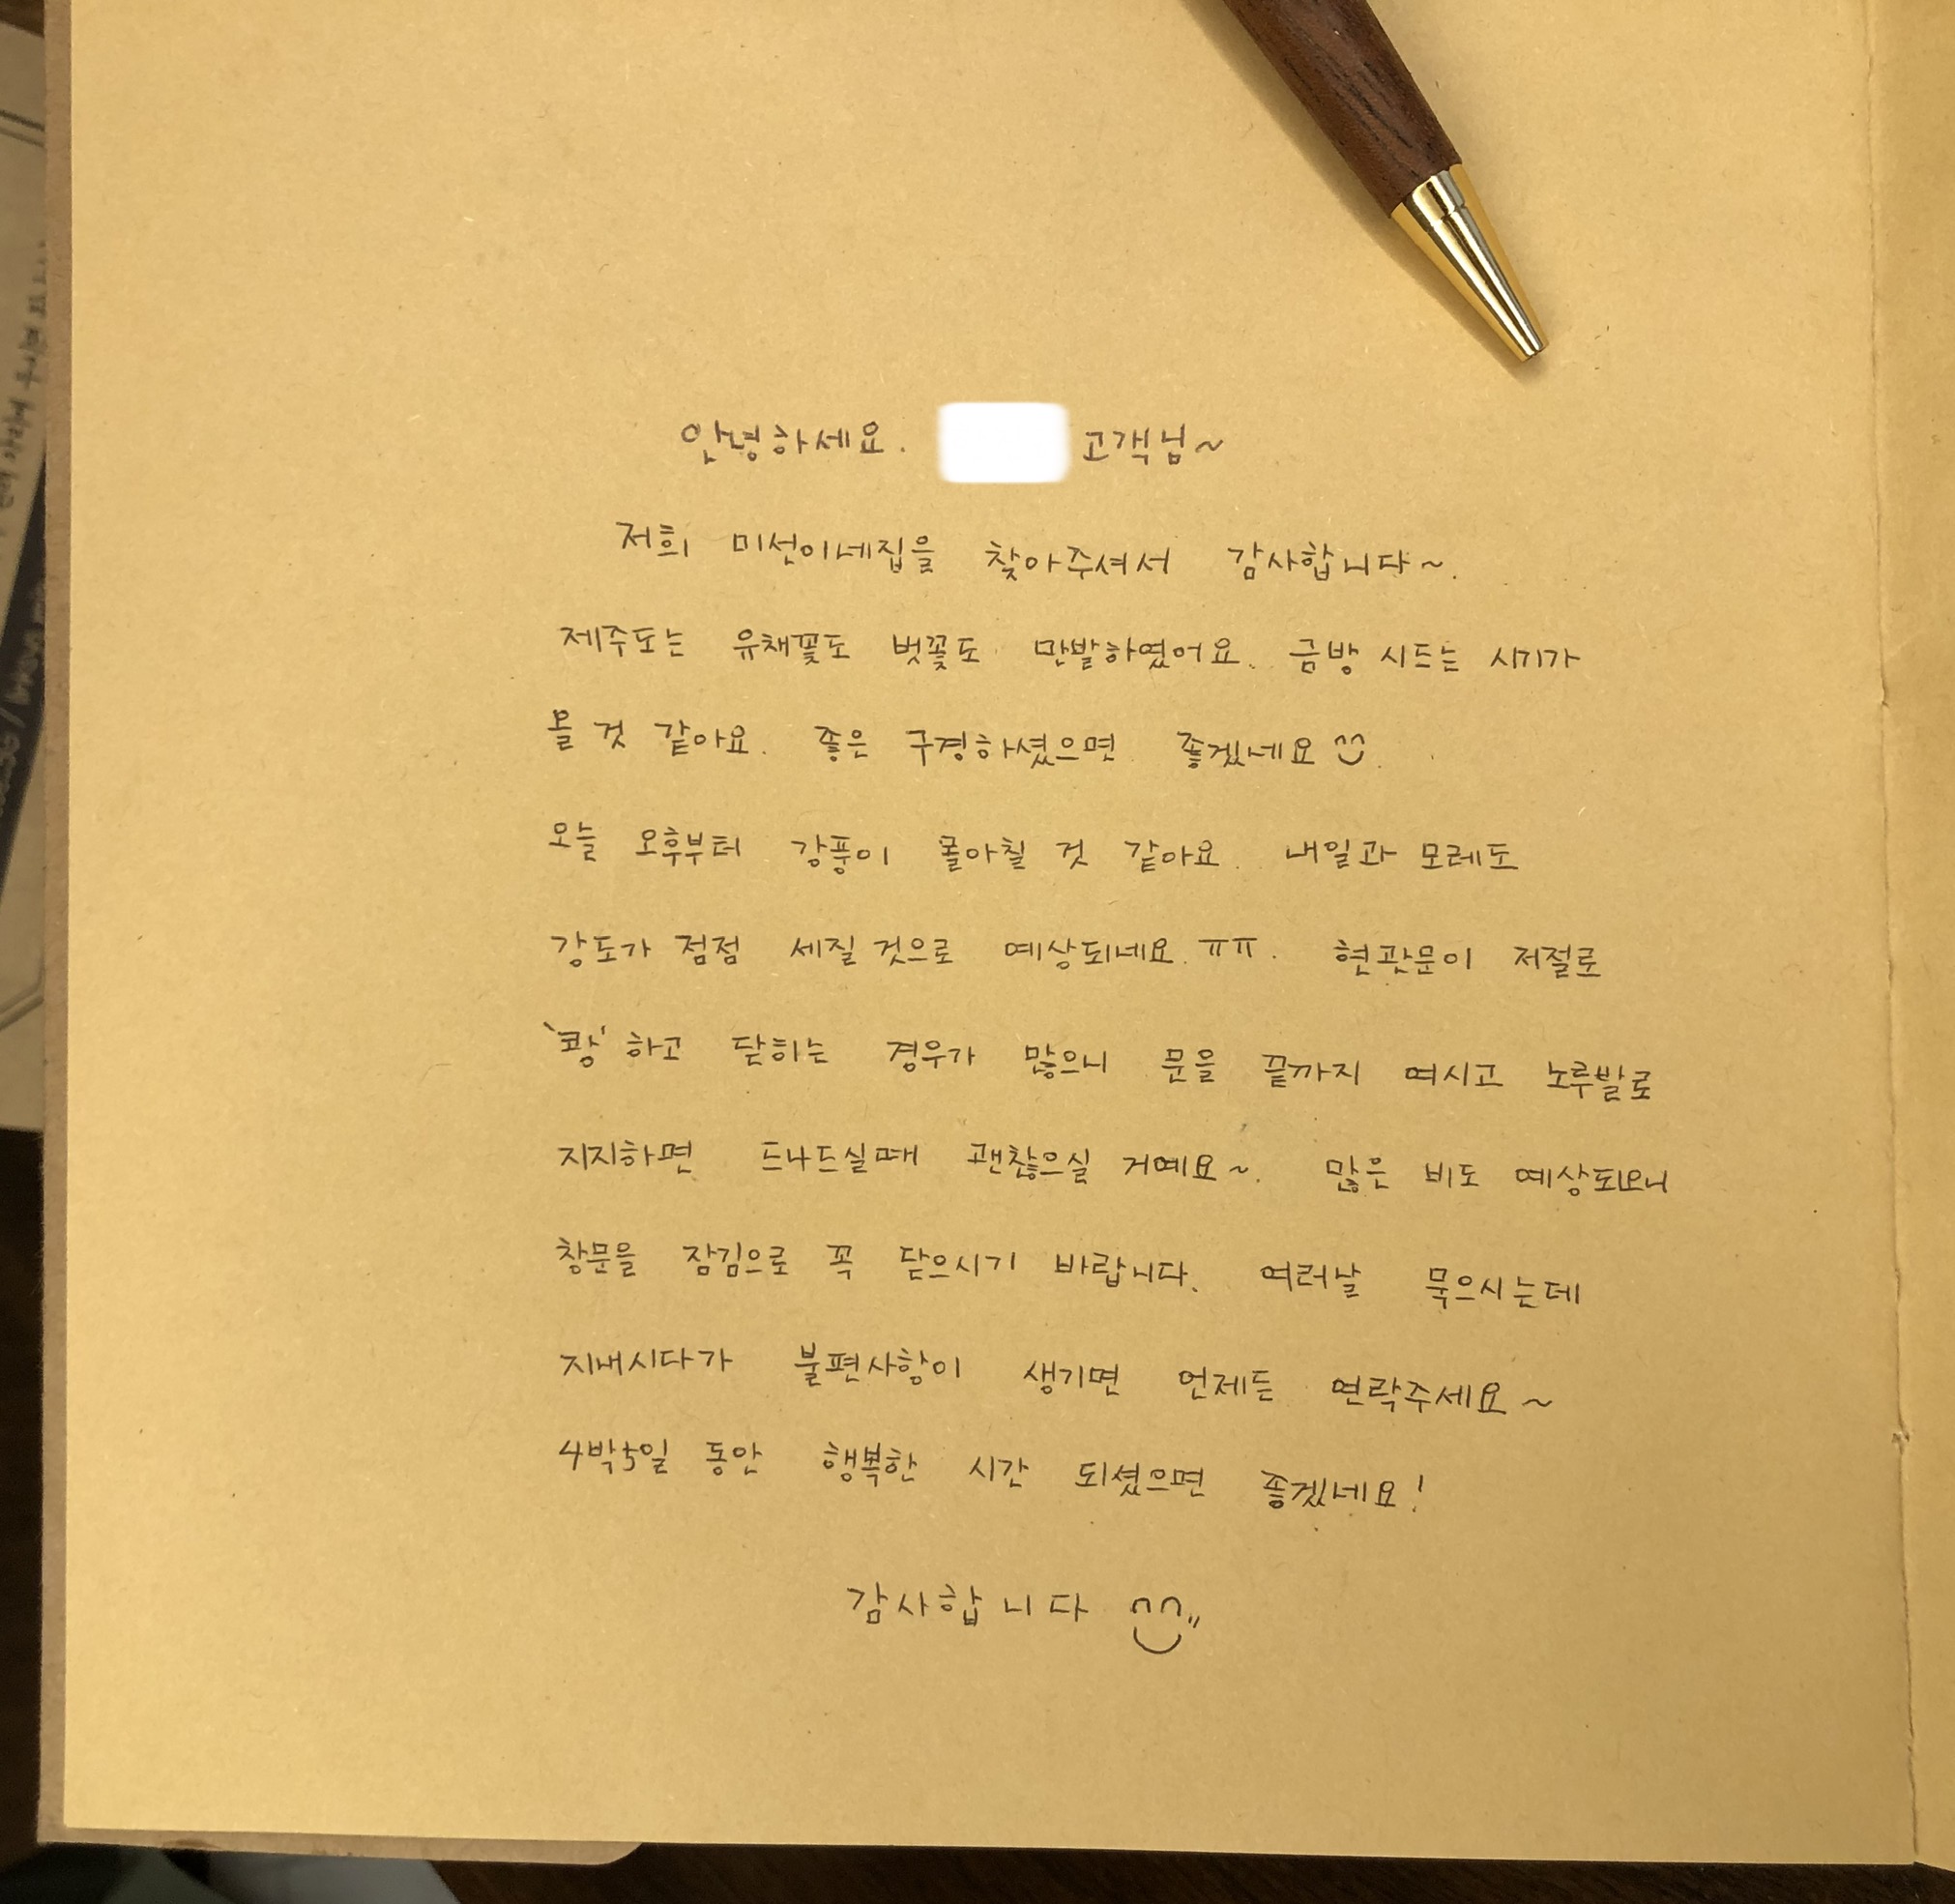 안녕하세요. 고객님~
저희 미선이네집을 찾아주셔서 감사합니다~.
제주도는 유채꽃도 벚꽃도 만발하였어요. 금방 시드는 시기가
올 것 같아요. 좋은 구경하셨으면 좋겠네요
오늘 오후부터 강풍이 몰아칠 것 같아요. 내일과 모레도
강도가 점점 세질 것으로 예상되네요.ㅠㅠ. 현관문이 저절로
'쾅' 하고 닫히는 경우가 많으니 문을 끝까지 여시고 노루발로
지지하면 드나드실때 괜찮으실 거예요~. 많은 비도 예상되오니
창문을 잠김으로 꼭 닫으시기 바랍니다. 여러날 묵으시는데
지내시다가 불편사항이 생기면 언제든 연락주세요~
4박5일 동안 행복한 시간 되셨으면 좋겠네요!
감사합니다